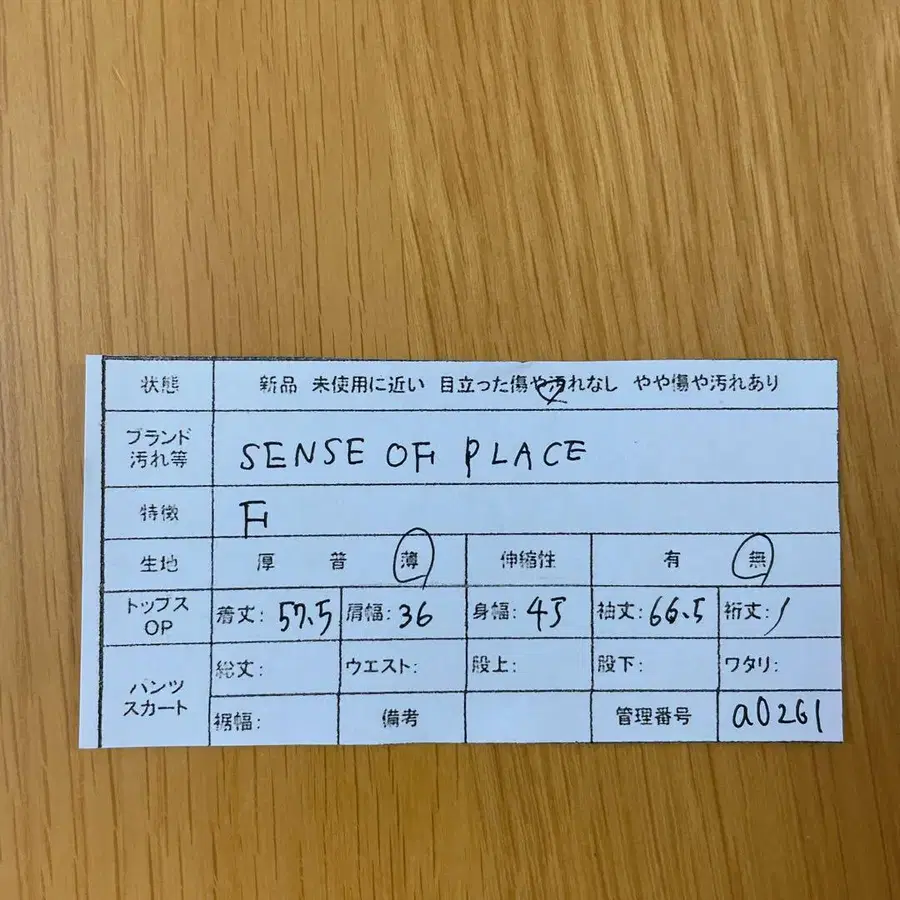 状態 新品 未使用に近い 目立った傷や汚れなし やや傷や汚れあり
ブランド
汚れ等
SENSE OF PLACE
特徴 F
生地 厚 普 薄 伸縮性 有 無
トップス
OP
着丈: 57.5 肩幅: 36 身幅: 45 袖丈: 66.5 裄丈: /
パンツ
スカート
総丈: ウエスト: 股上: 股下: ワタリ:
裾幅: 備考 管理番号 a0261